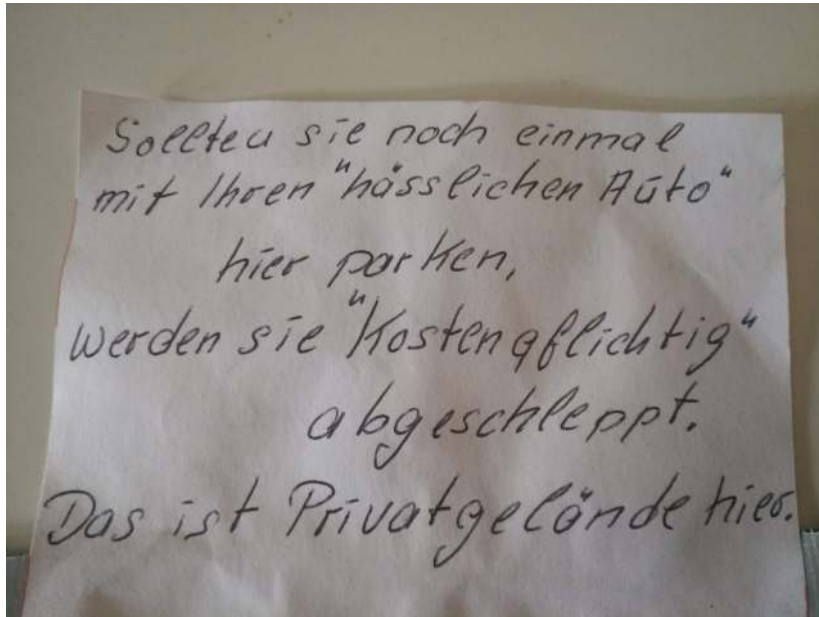 Sollten sie noch einmal
mit Ihren "hässlichen Auto"
hier parken,
werden sie "Kostenpflichtig"
abgeschleppt.
Das ist Privatgelände hier.